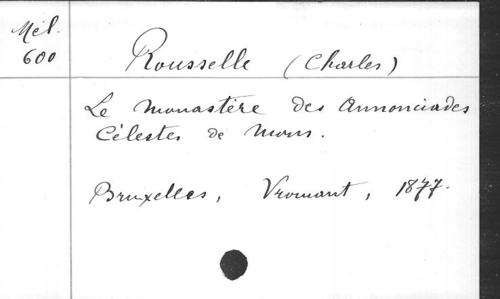 Mél.
600
Rousselle (Charles)
Le Monastère des Annonciades
Célestes de Mons.
Bruxelles, Vromant, 1877.